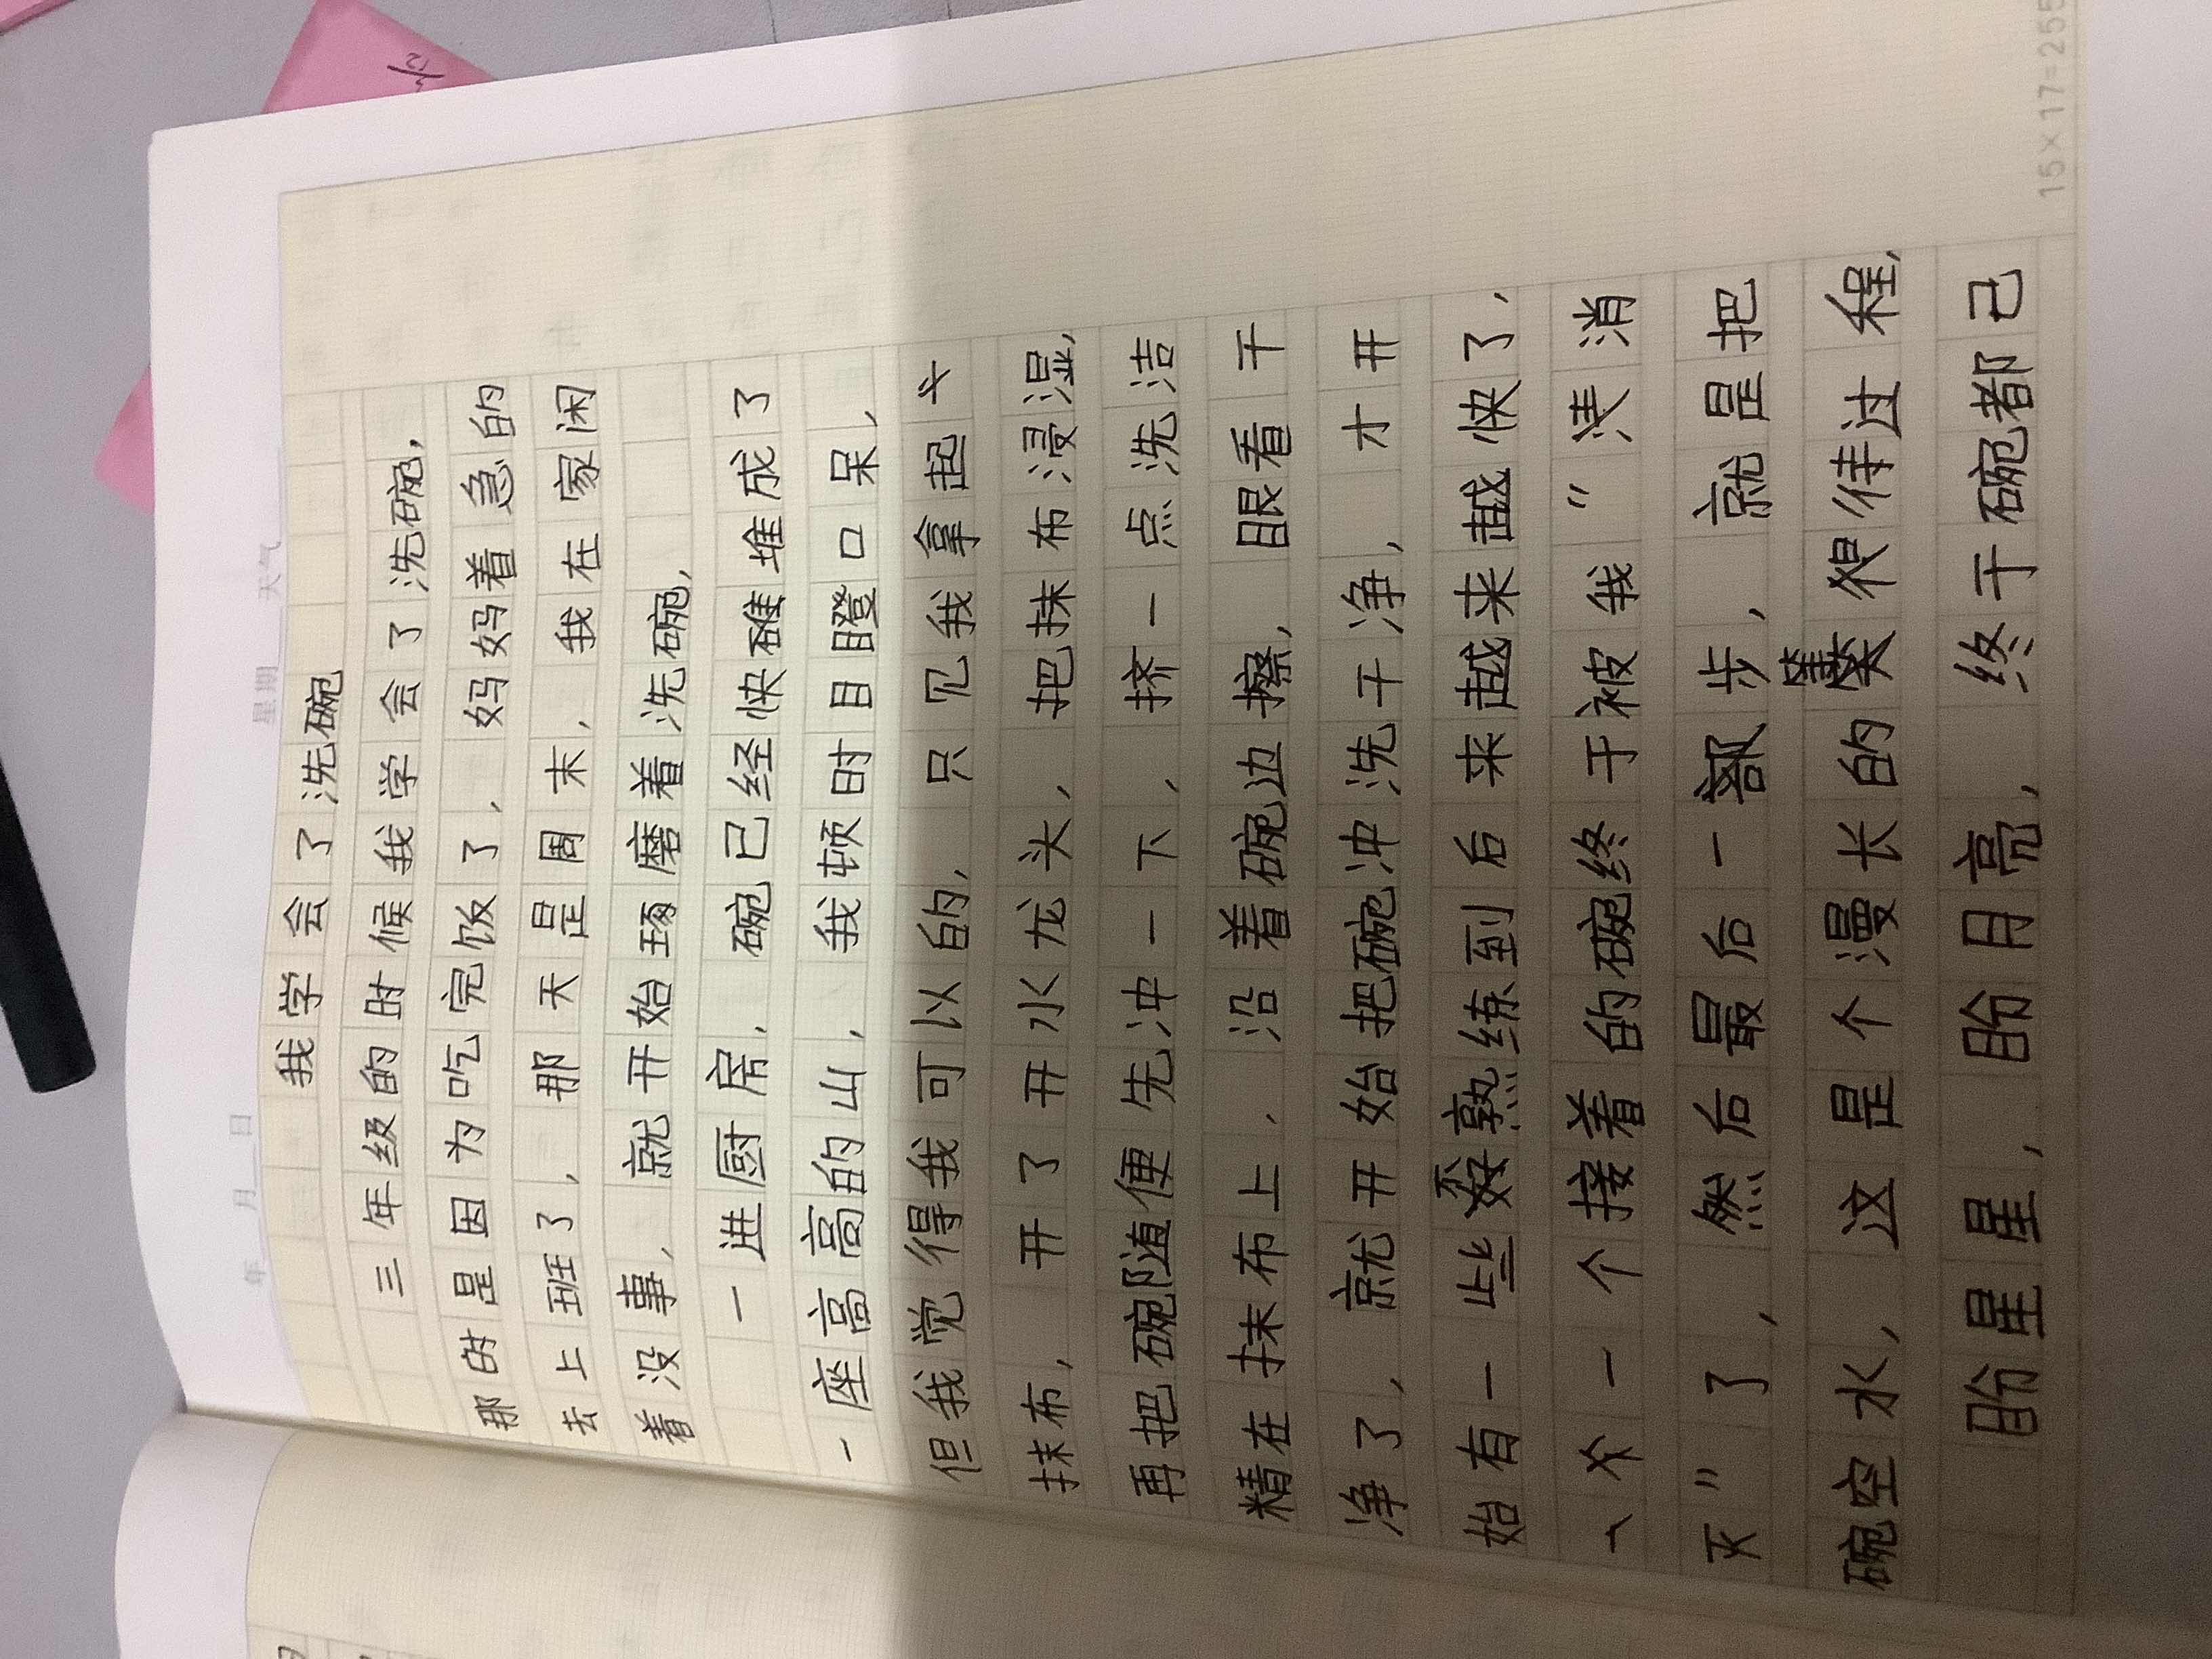 年 月 日 星期 天气
我学会了洗碗
三年级的时候我学会了洗碗，
那时是因为吃完饭了，妈妈着急的
去上班了，那天是周末，我在家闲
着没事，就开始琢磨着洗碗，
一进厨房，碗已经快碓堆成了
一座高高的山，我顿时目瞪口呆，
但我觉得我可以的，只见我拿起
抹布，开了开水龙头，把抹布浸湿，
再把碗随便先冲一下，挤一点洗洁
精在抹布上，沿着碗边擦，眼看干
净了，就开始把碗冲洗干净，才开
始有一些 熟练到后来越来越快了，
一个一个接着的碗终于被我”消
灭”了，然后最后一 步，就是把
碗空水，这是个漫长的 等待过程，
盼星星，盼月亮，终于碗都己
15×17=255